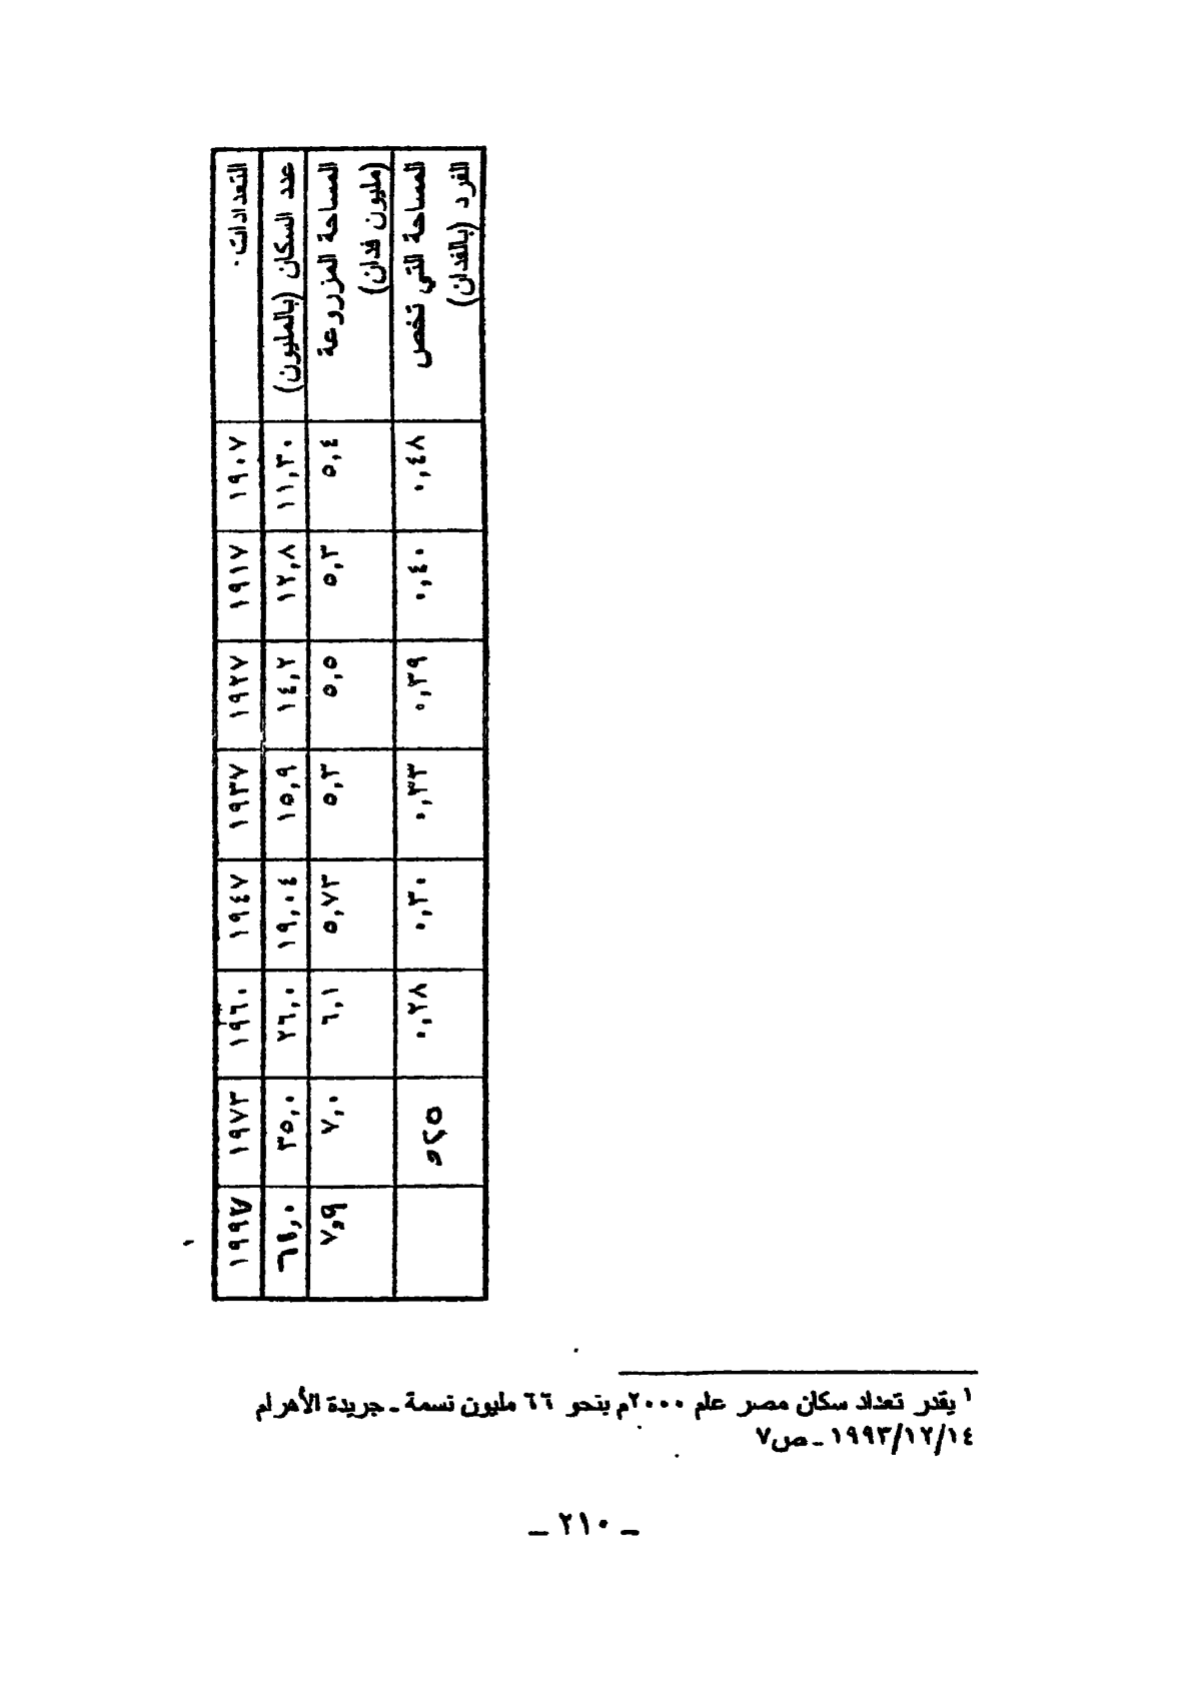 التعدادات. ١٩٠٧ ١٩١٧ ١٩٢٧ ١٩٣٧ ١٩٤٧ ١٩٦٠ ١٩٧٣ ١٩٩٧ ١
عدد السكان (بالمليون) ١١,٣٠ ١٢,٨ ١٤,٢ ١٥,٩ ١٩,٠٤ ٢٦,٠ ٣٥,٠ ٦٤,٠
المساحة المزروعة ٥,٤ ٥,٣ ٥,٥ ٥,٣ ٥,٧٣ ٦,١ ٧,٠ ٧,٩
(مليون فدان)
المساحة التي تخص ٠,٤٨ ٠,٤٠ ٠,٣٩ ٠,٣٣ ٠,٣٠ ٠,٢٨ ٢٥و
الفرد (بالفدان)
١ يقدر تعداد سكان مصر عام ٢٠٠٠م بنحو ٦٦ مليون نسمة ـ جريدة الأهرام
١٩٩٣/١٢/١٤ ـ ص٧
ـ ٢١٠ ـ